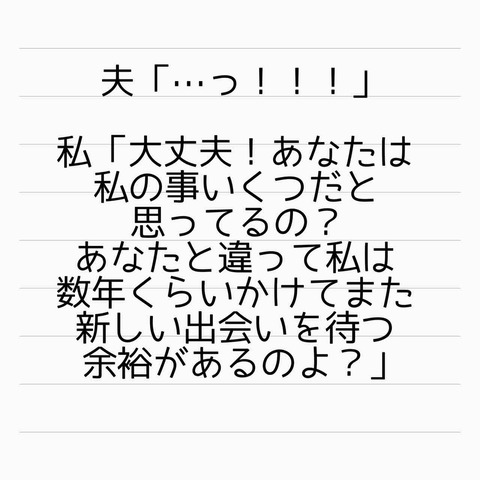 夫「…っ！！！」
私「大丈夫！あなたは
私の事いくつだと
思ってるの？
あなたと違って私は
数年くらいかけてまた
新しい出会いを待つ
余裕があるのよ？」